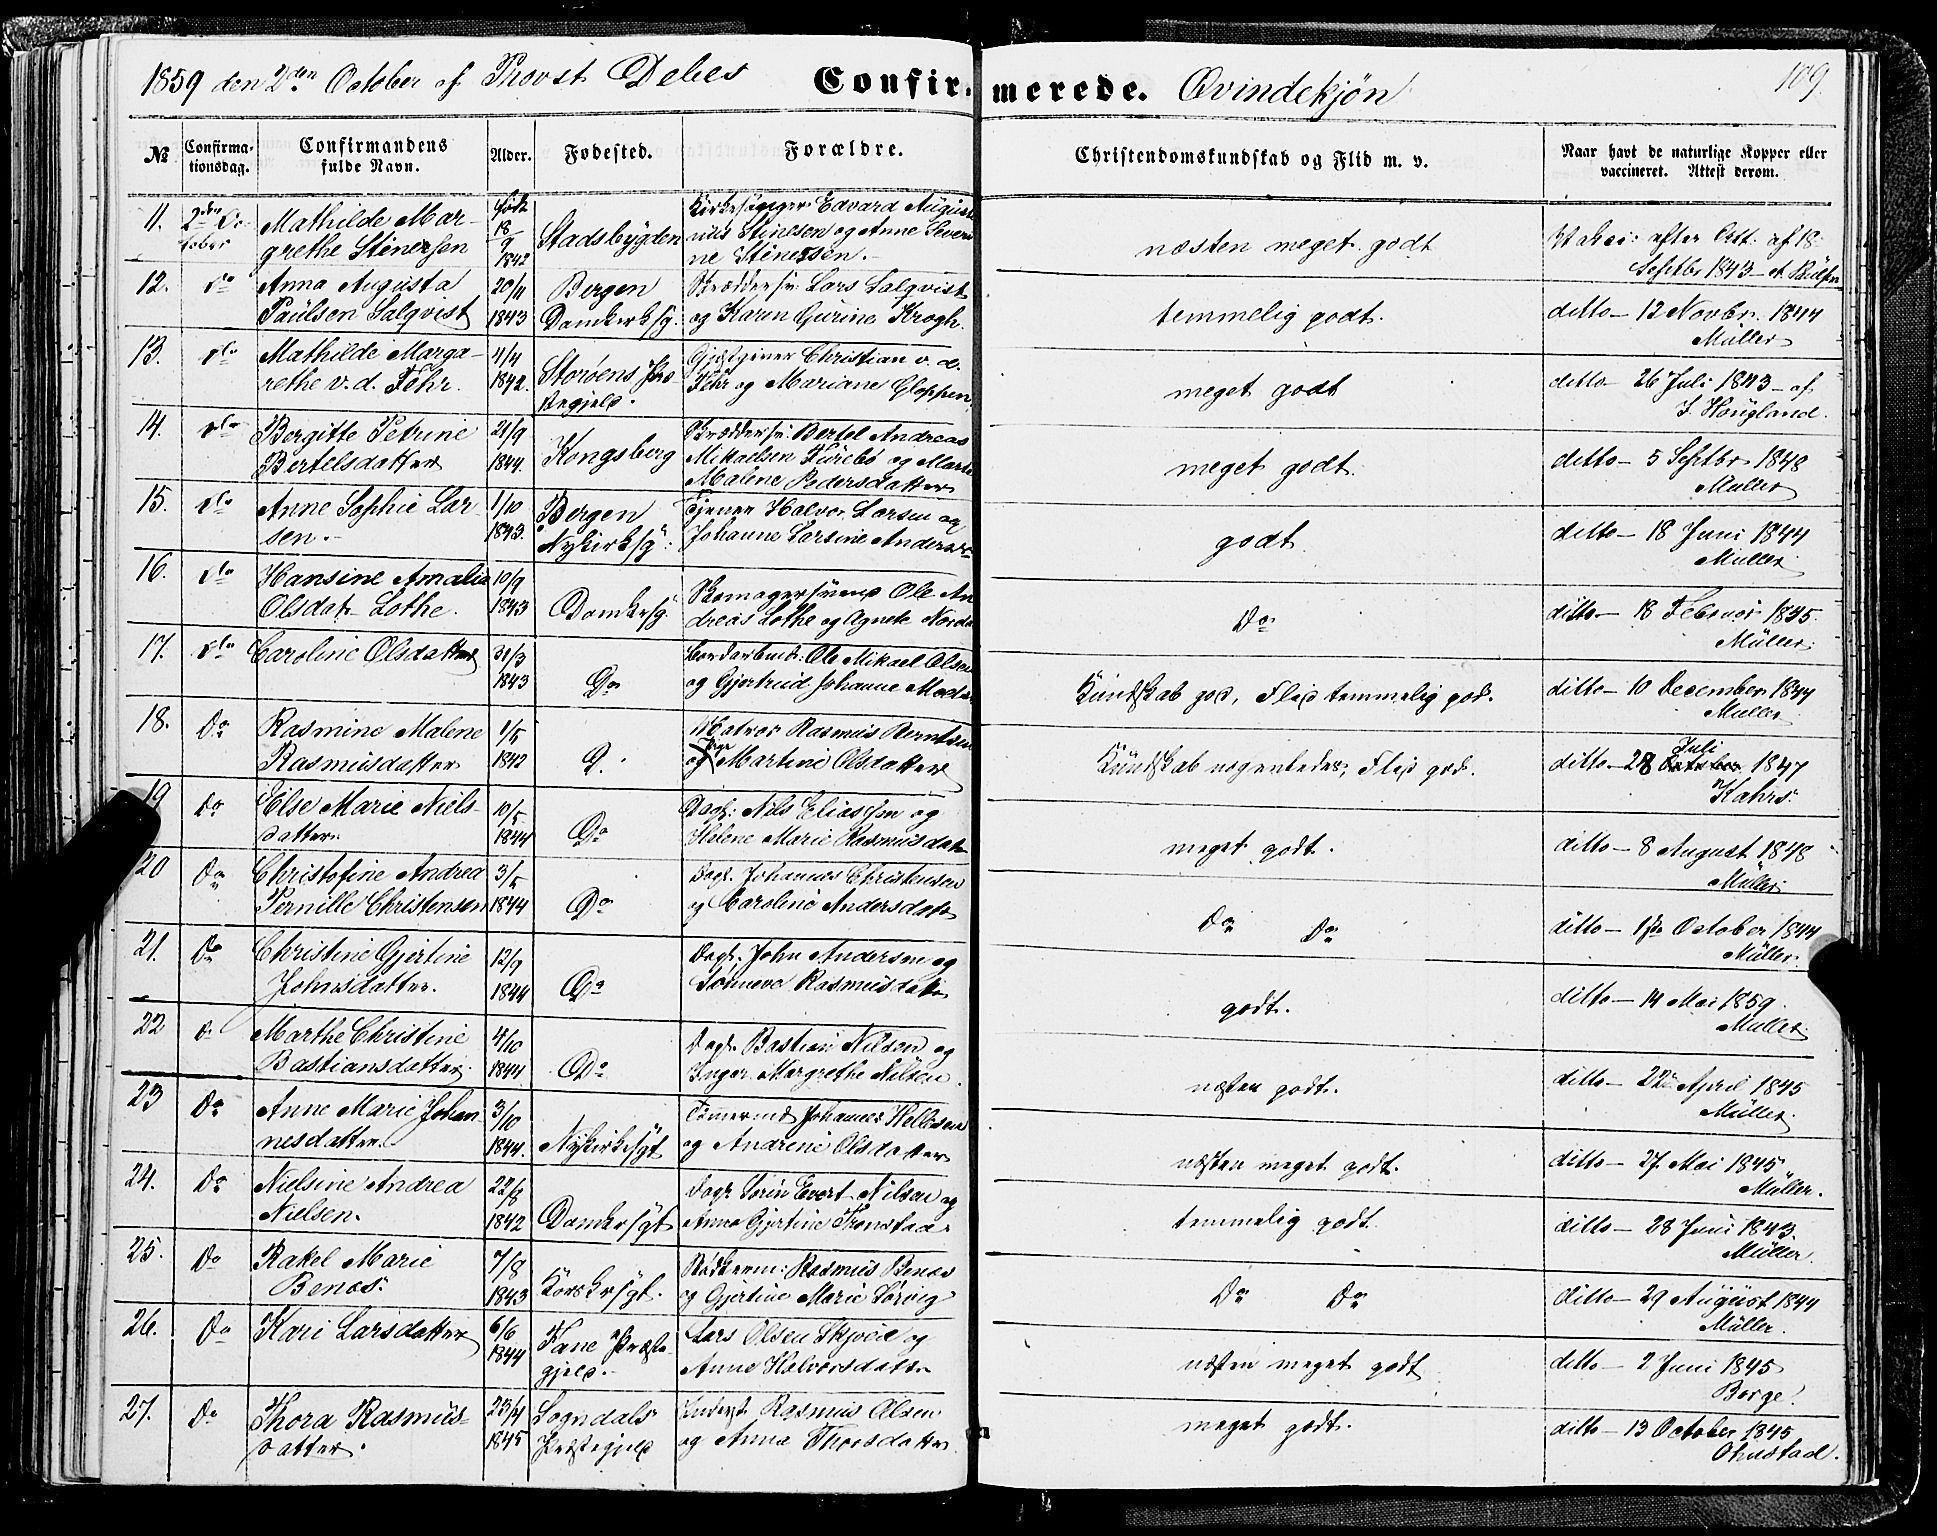 1859 den 2den October af Provst Debes Confirmerede. Qvindekjøn 109.
№ Confirmationsdag. Confirmandens fulde Navn. Alder. Fødested. Forældre. Christendomskundskab og Flid m. v. Naar havt de naturlige Kopper eller vaccineret. Attest derom.
11. 2den October
Mathilde Margrethe Stenersen
født 18/9 1842
Stadsbygden
Edvard Augustinus Stenersen og Anne Severine Stenersen.
næsten meget godt
Vakci: efter Att: af 18 Septbr 1843
12. do
Anna Augusta
Paulsen Salqvist
20/11
1843
Bergen
Domkirksg:
Skræddersv: Lars Salqvist
og Karen Gurine Krogh.
temmelig godt.
ditto – 12 Novbr. 1844
Müller
13. do
Mathilde Marga-
rethe v. d. Fehr.
4/4
1842.
Storøens Præ-
stegjeld.
Gjæstgiver Christian v. d.
Fehr og Mariane Gloppen.
meget godt
ditto – 26 Juli 1843 – af
J. Hougland.
14. do
Bergitte Petrine
Bertelsdatter
21/9
1844.
Kongsberg
Skræddersv: Bertel Andreas
Mikaelsen Furebø og Marte
Malene Pedersdatter
meget godt.
ditto – 5 Septbr 1848
Müller
15. do
Anne Sophie Lar-
sen.
1/10
1843.
Bergen
Nykirksg:
Tjener Halvor Larsen og
Johanne Larsine Anders
godt
ditto – 18 Juni 1844
Müller
16. do
Hansine Amalia
Olsdatr Lothe.
10/9
1843
Domkrsg.
Skomagersvend Ole An
dreas Lothe og Agnete
Do
ditto – 18 Februar 1845.
Müller
17. do
Caroline Olsdatter
31/3
1843
Do
Ole Mikael Olsen
og Gjertrud Johanne
Kundskab god, Flid temmelig god.
ditto – 10 December 1844
Müller
18. Do
Rasmine Malene
Rasmusdatter
1/5
1842
D.
Matros Rasmus Berntsen
og Martine Olsdatter
Kundskab nogenledes, Flid god.
ditto – 28 Juli 1847
Kahrs.
19 Do
Else Marie Niels-
datter
10/5
1844
Do
Dagl: Nils Eliassen og
Helene Marie Rasmusdatr
meget godt.
ditto – 8 August 1848
Müller
20 Do
Christofine Andrea
Pernille Christensen
3/5
1844
Do
Dagl. Johannes Christensen
og Caroline Andersdatr
Do Do
ditto – October 1844
Müller.
21. Do
Christine Gjertine
Johnsdatter.
12/9
1844
Do
Dagl. John Andersen og
Rasmusdatr
godt.
ditto – 14 Mai 1859.
Müller
22 Do
Marthe Christine
Bastiansdatter.
4/10
1844
Do
Dagl. Bastian Nilsen og
Inger Margrethe Nilsen.
næsten godt.
ditto – 22 April 1845
Müller.
23 Do
Anne Marie Johan-
nesdatter.
3/10
1844.
Nykirkesgt
Tømermd Johannes Hellesen
og Andrene Olsdatter
næsten meget godt.
ditto – 27 Mai 1845
Müller.
24. Do
Nielsine Andrea
Nielsen.
1842
Domkrsgt
Dagl. Evert Nilsen og
Anne Gjertine
temmelig godt.
ditto – 28 Juni 1843.
Müller.
25. Do
Rakel Marie
Benes.
7/8
1843
Korskrsgt.
Rasmus Benes
og Gjertine Marie Sørvig
Do Do
ditto – 29 August 1844
Müller.
26. Do
Kari Larsdatter
6/6
1844
Fane Præste-
gjeld.
Lars Olsen og
Anne Halvorsdatr
næsten meget godt
ditto – 2 Juni 1845
Borge.
27. Do
Thora Rasmus-
datter.
23/4
1845
Sogndals
Præstegjeld
Rasmus Olsen
og Anna Thorsdatter
meget godt.
ditto – 13 October 1845